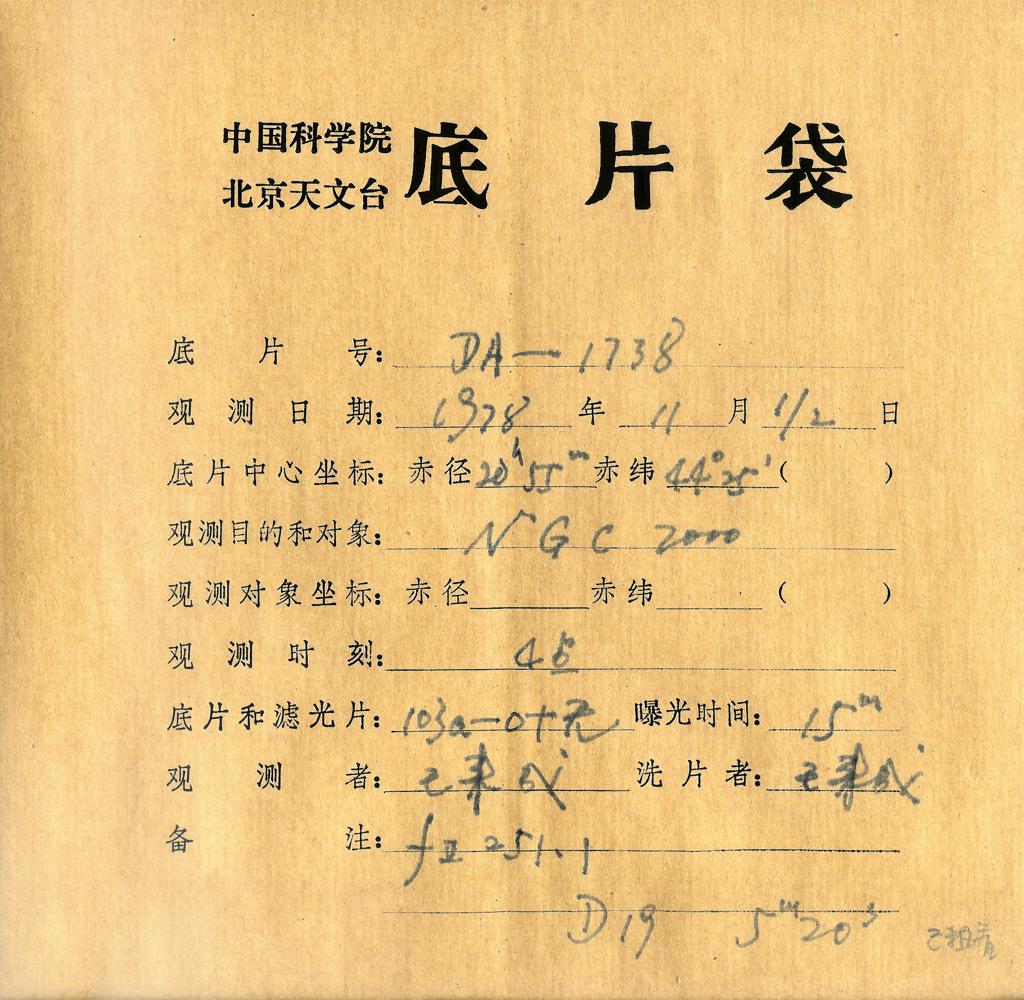 中国科学院
北京天文台 底片袋
底片号: DA-1738
观测日期: 1978年11月1/2日
底片中心坐标: 赤径20ʰ55ᵐ赤纬44°25′( )
观测目的和对象: NGC 7000
观测对象坐标: 赤径 赤纬 ( )
观测时刻:
底片和滤光片: 103a-O+无 曝光时间: 15ᵐ
观测者: 洗片者:
备注: f= 251.1
D19 5ᵐ20ˢ